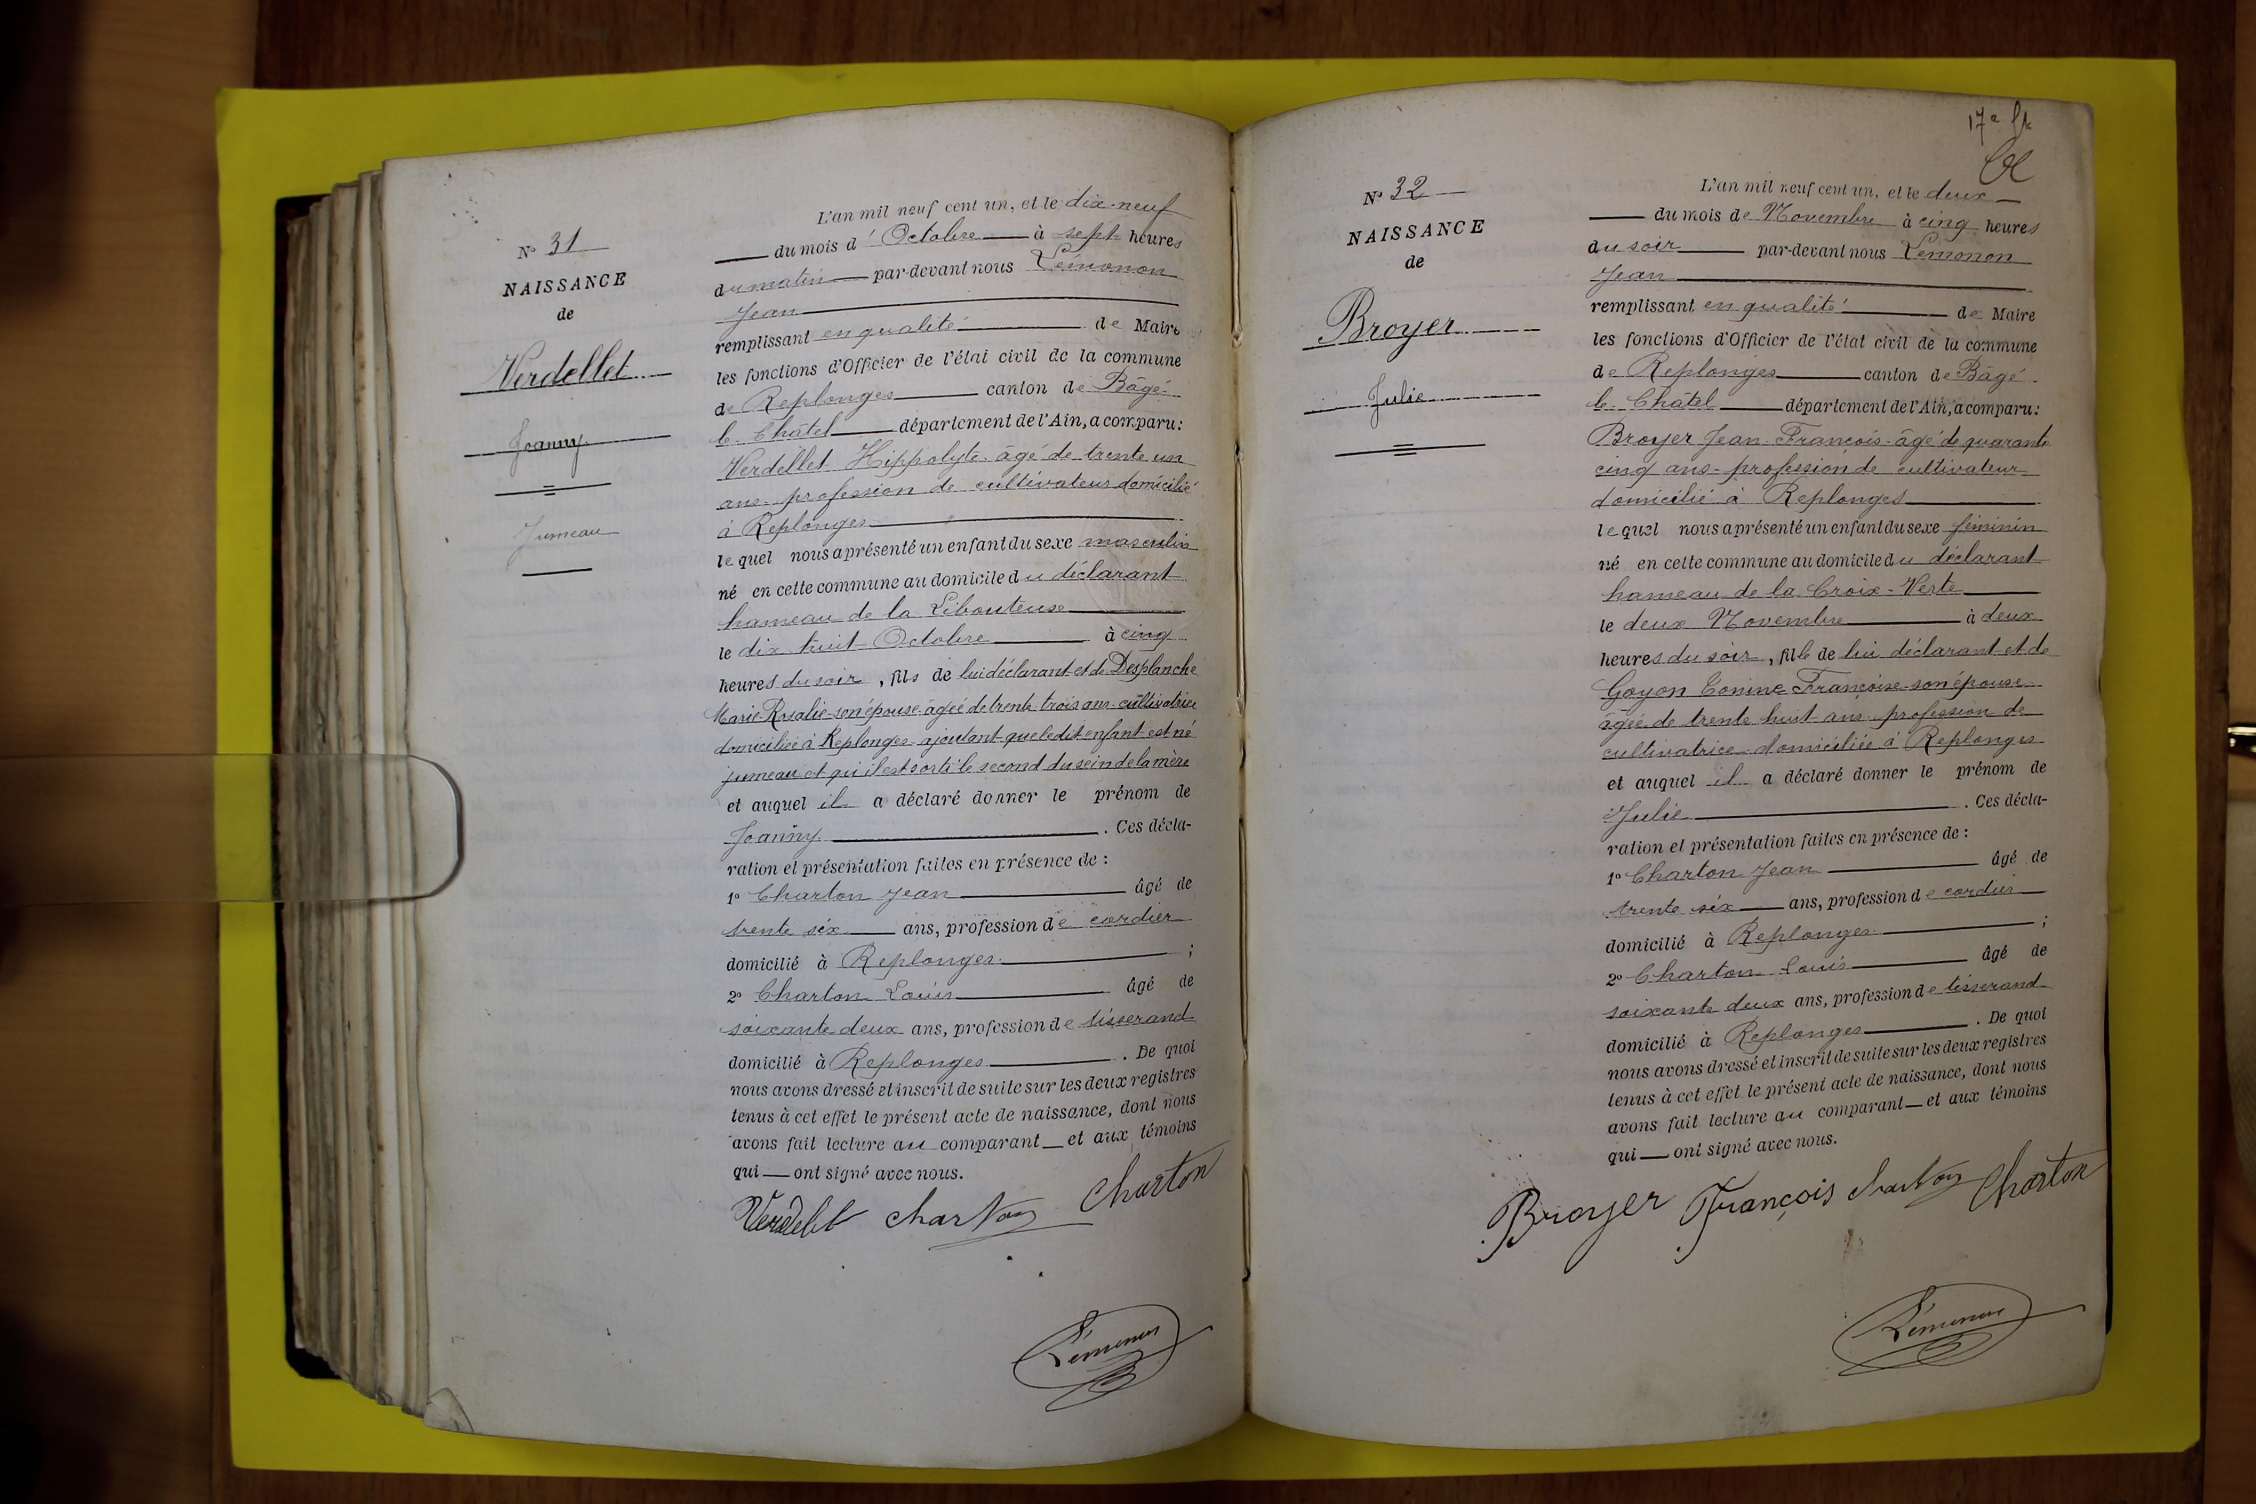 N° 31
NAISSANCE
de
Verdellet
Joanny
Jumeau
L'an mil neuf cent un, et le dix-neuf
du mois d'Octobre à sept heures
du matin par-devant nous Lémonon
Jean
remplissant en qualité de Maire
les fonctions d'Officier de l'état civil de la commune
de Replonges canton de Bâgé
le Châtel département de l'Ain, a comparu:
Verdellet Hippolyte âgé de trente un
ans profession de cultivateur domicilié
à Replonges
lequel nous a présenté un enfant du sexe masculin
né en cette commune au domicile du déclarant
hameau de la Libouteuse
le dix huit Octobre à cinq
heures du soir, fils de lui déclarant et de Desplanche
Marie Rosalie son épouse âgée de trente trois ans cultivatrice
domiciliée à Replonges ajoutant que ledit enfant est né
jumeau et qu'il est sorti le second du sein de la mère
et auquel il a déclaré donner le prénom de
Joanny. Ces décla-
ration et présentation faites en présence de :
1° Charton Jean âgé de
trente six ans, profession de cordier
domicilié à Replonges ;
2° Charton Louis âgé de
soixante deux ans, profession de tisserand
domicilié à Replonges. De quoi
nous avons dressé et inscrit de suite sur les deux registres
tenus à cet effet le présent acte de naissance, dont nous
avons fait lecture au comparant et aux témoins
qui ont signé avec nous.
Verdellet Charton Charton
Lémonon
17e
N° 32
NAISSANCE
de
Broyer
Julie
L'an mil neuf cent un, et le deux
du mois de Novembre à cinq heures
du soir par-devant nous Lémonon
Jean
remplissant en qualité de Maire
les fonctions d'Officier de l'état civil de la commune
de Replonges canton de Bâgé
le Châtel département de l'Ain, a comparu:
Broyer Jean François âgé de quarante
cinq ans profession de cultivateur
domicilié à Replonges
lequel nous a présenté un enfant du sexe féminin
né en cette commune au domicile du déclarant
hameau de la Croix-Verte
le deux Novembre à deux
heures du soir, fille de lui déclarant et de
Goyon Françoise son épouse
âgée de trente huit ans profession de
cultivatrice domiciliée à Replonges
et auquel il a déclaré donner le prénom de
Julie. Ces décla-
ration et présentation faites en présence de :
1° Charton Jean âgé de
trente six ans, profession de cordier
domicilié à Replonges ;
2° Charton Louis âgé de
soixante deux ans, profession de tisserand
domicilié à Replonges. De quoi
nous avons dressé et inscrit de suite sur les deux registres
tenus à cet effet le présent acte de naissance, dont nous
avons fait lecture au comparant et aux témoins
qui ont signé avec nous.
Broyer François Charton Charton
Lémonon